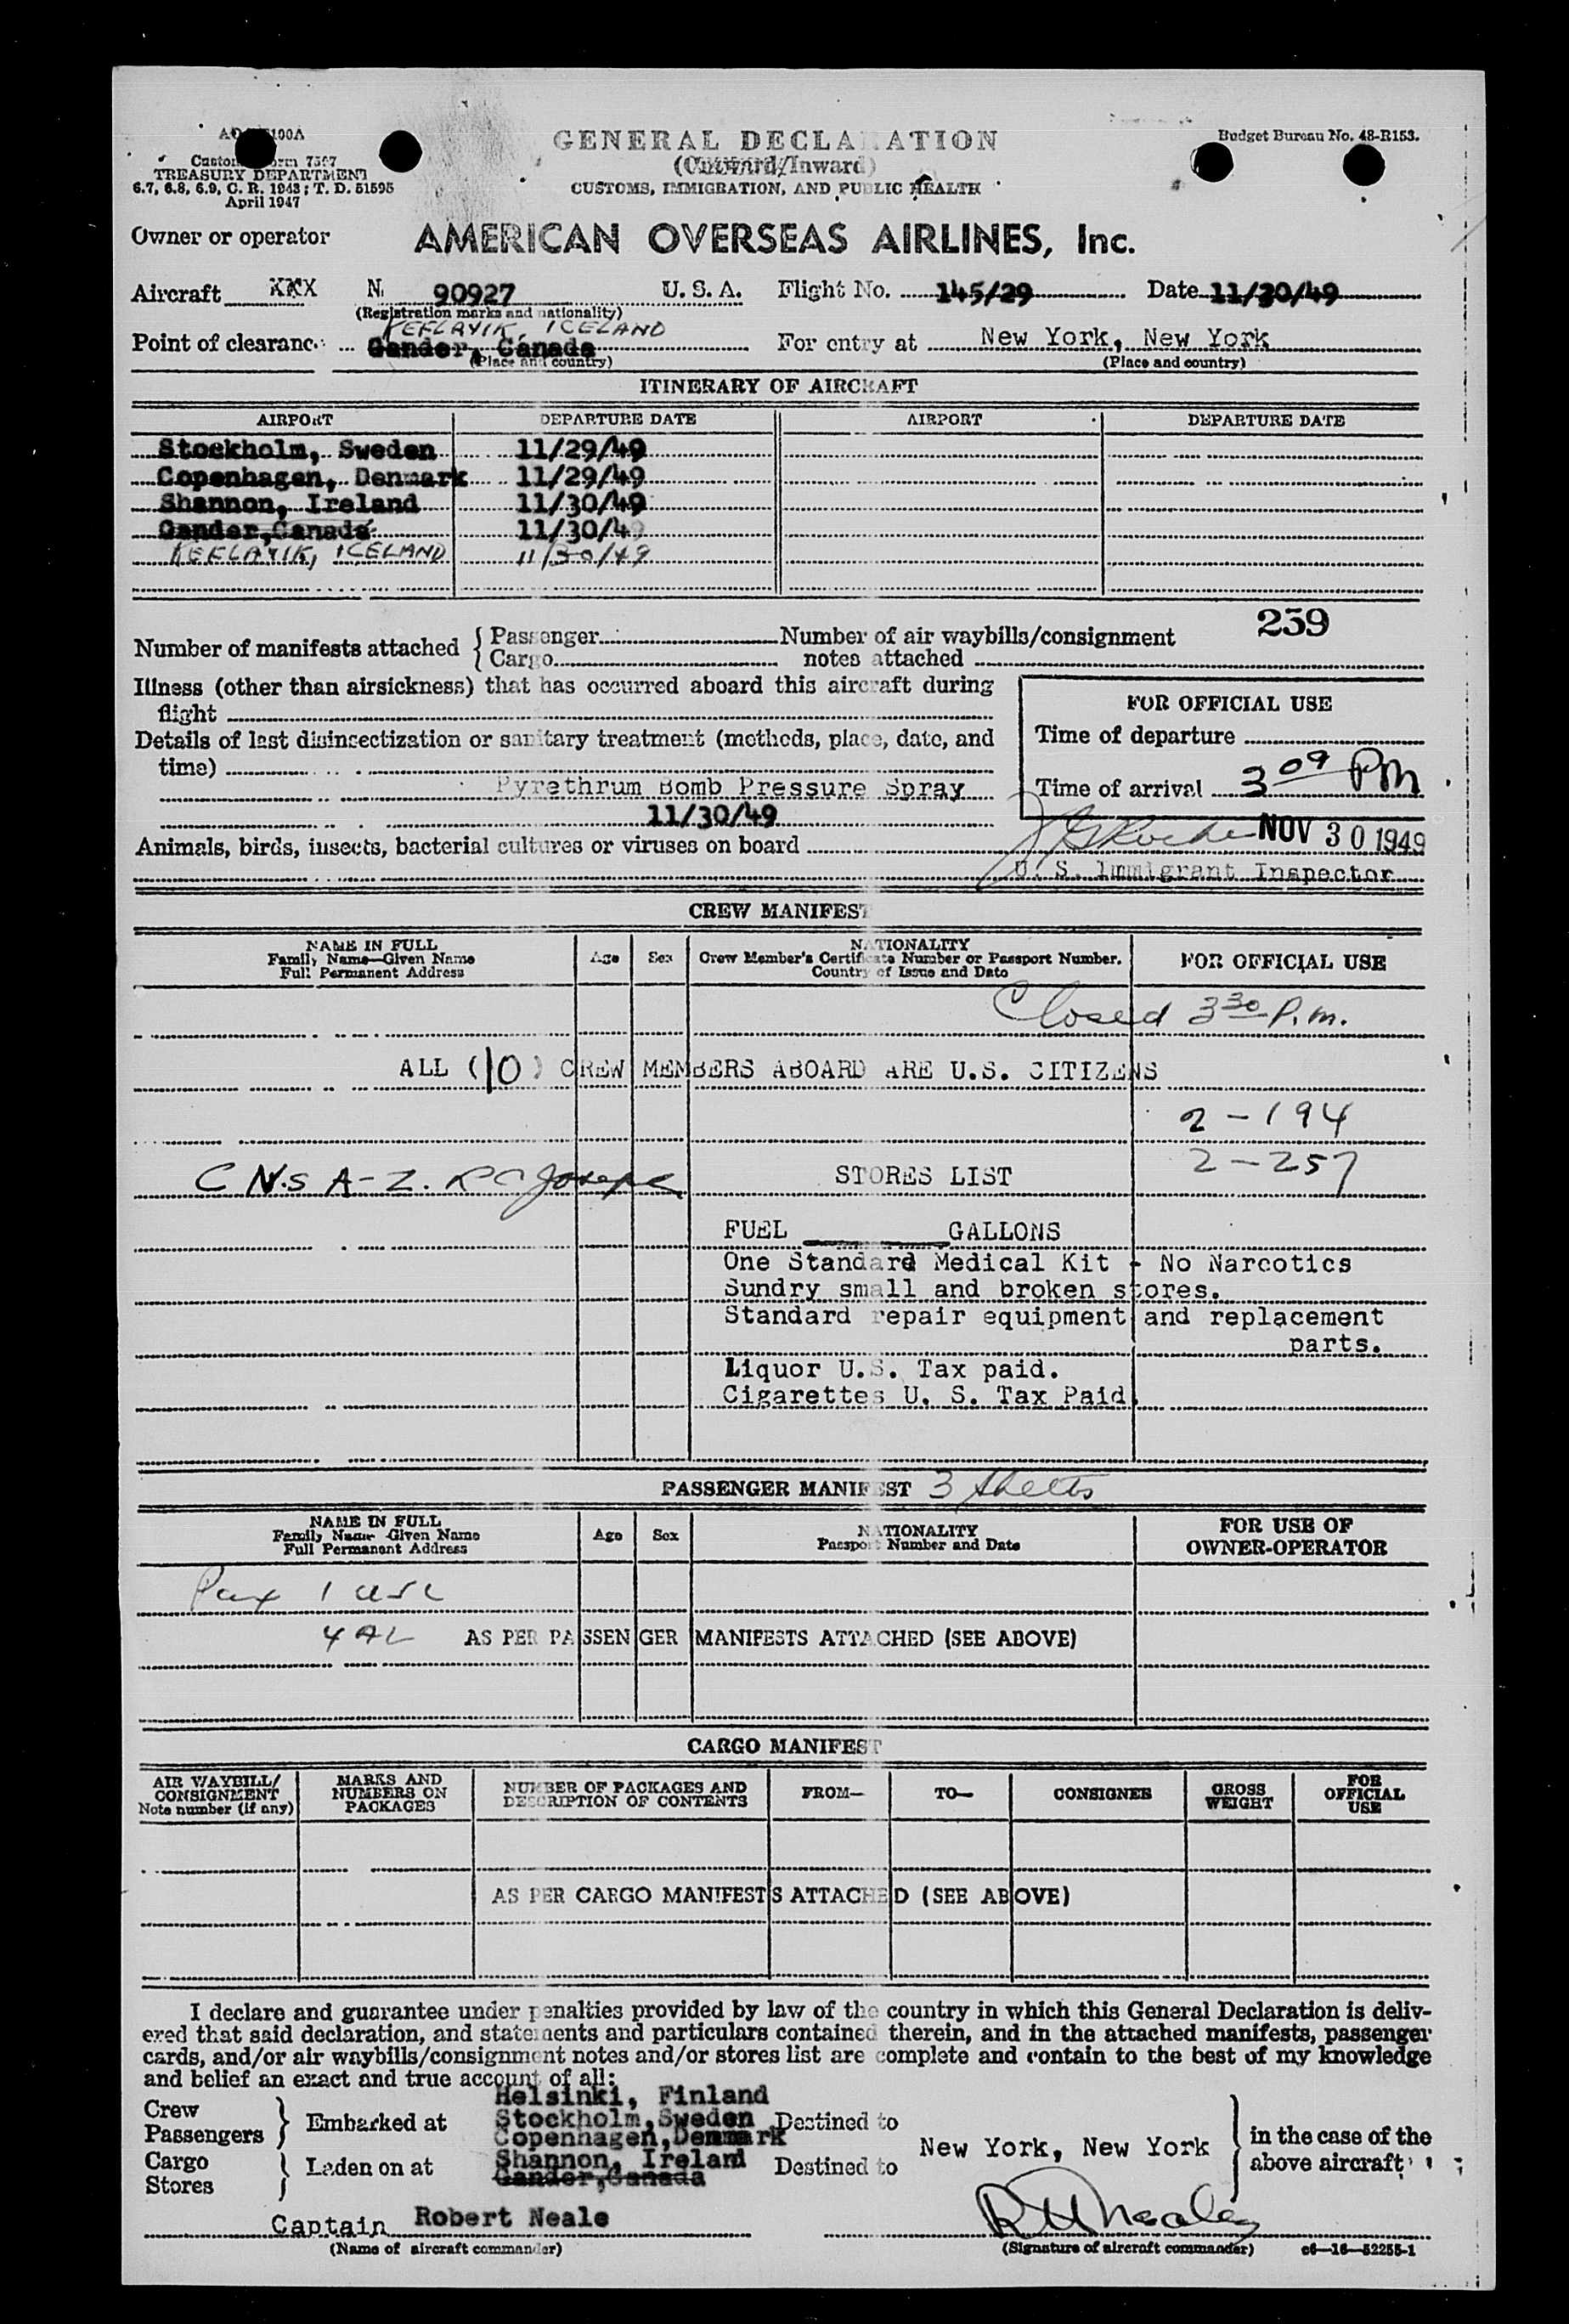 GENERAL DECLARATION
Budget Bureau No. 48-R153.
(Outward/Inward)
Customs Form 7507
TREASURY DEPARTMENT
6.7, 6.8, 6.9, C. R. 1943; T. D. 51595
April 1947
CUSTOMS, IMMIGRATION, AND PUBLIC HEALTH
Owner or operator AMERICAN OVERSEAS AIRLINES, Inc.
Aircraft XXX N 90927 U. S. A. Flight No. 145/29 Date 11/30/49
(Registration marks and nationality)
KEFLAVIK, ICELAND
Point of clearance Gander, Canada For entry at New York, New York
(Place and country) (Place and country)
ITINERARY OF AIRCRAFT
AIRPORT DEPARTURE DATE AIRPORT DEPARTURE DATE
Stockholm, Sweden 11/29/49
Copenhagen, Denmark 11/29/49
Shannon, Ireland 11/30/49
Gander, Canada 11/30/49
KEFLAVIK, ICELAND 11/30/49
239
Number of manifests attached { Passenger Number of air waybills/consignment
Cargo notes attached
Illness (other than airsickness) that has occurred aboard this aircraft during
flight
Details of last disinsectization or sanitary treatment (methods, place, date, and
time)
Pyrethrum Bomb Pressure Spray
11/30/49
FOR OFFICIAL USE
Time of departure
Time of arrival 3 09 PM
NOV 30 1949
Animals, birds, insects, bacterial cultures or viruses on board
U. S. Immigrant Inspector
CREW MANIFEST
NAME IN FULL
Family Name—Given Name
Full Permanent Address
Age Sex
NATIONALITY
Crew Member's Certificate Number or Passport Number.
Country of Issue and Date
FOR OFFICIAL USE
Closed 3 30 P.m.
ALL (10) CREW MEMBERS ABOARD ARE U.S. CITIZENS
2-194
2-257
C N.S A-Z. R C Joseph
STORES LIST
FUEL GALLONS
One Standard Medical Kit - No Narcotics
Sundry small and broken stores.
Standard repair equipment and replacement
parts.
Liquor U.S. Tax paid.
Cigarettes U. S. Tax Paid.
PASSENGER MANIFEST 3 sheets
NAME IN FULL
Family Name Given Name
Full Permanent Address
Age Sex
NATIONALITY
Passport Number and Date
FOR USE OF
OWNER-OPERATOR
Pax 1 USC
4 AL AS PER PASSENGER MANIFESTS ATTACHED (SEE ABOVE)
CARGO MANIFEST
AIR WAYBILL/
CONSIGNMENT
Note number (if any)
MARKS AND
NUMBERS ON
PACKAGES
NUMBER OF PACKAGES AND
DESCRIPTION OF CONTENTS
FROM— TO— CONSIGNEE
GROSS
WEIGHT
FOR
OFFICIAL
USE
AS PER CARGO MANIFESTS ATTACHED (SEE ABOVE)
I declare and guarantee under penalties provided by law of the country in which this General Declaration is deliv-
ered that said declaration, and statements and particulars contained therein, and in the attached manifests, passenger
cards, and/or air waybills/consignment notes and/or stores list are complete and contain to the best of my knowledge
and belief an exact and true account of all:
Helsinki, Finland
Crew
Passengers } Embarked at Stockholm, Sweden Destined to
Copenhagen, Denmark
New York, New York } in the case of the
above aircraft
Cargo
Stores } Laden on at Shannon, Ireland Destined to
Gander, Canada
Captain Robert Neale
(Name of aircraft commander)
R H Neale
(Signature of aircraft commander) c6—16—52255-1